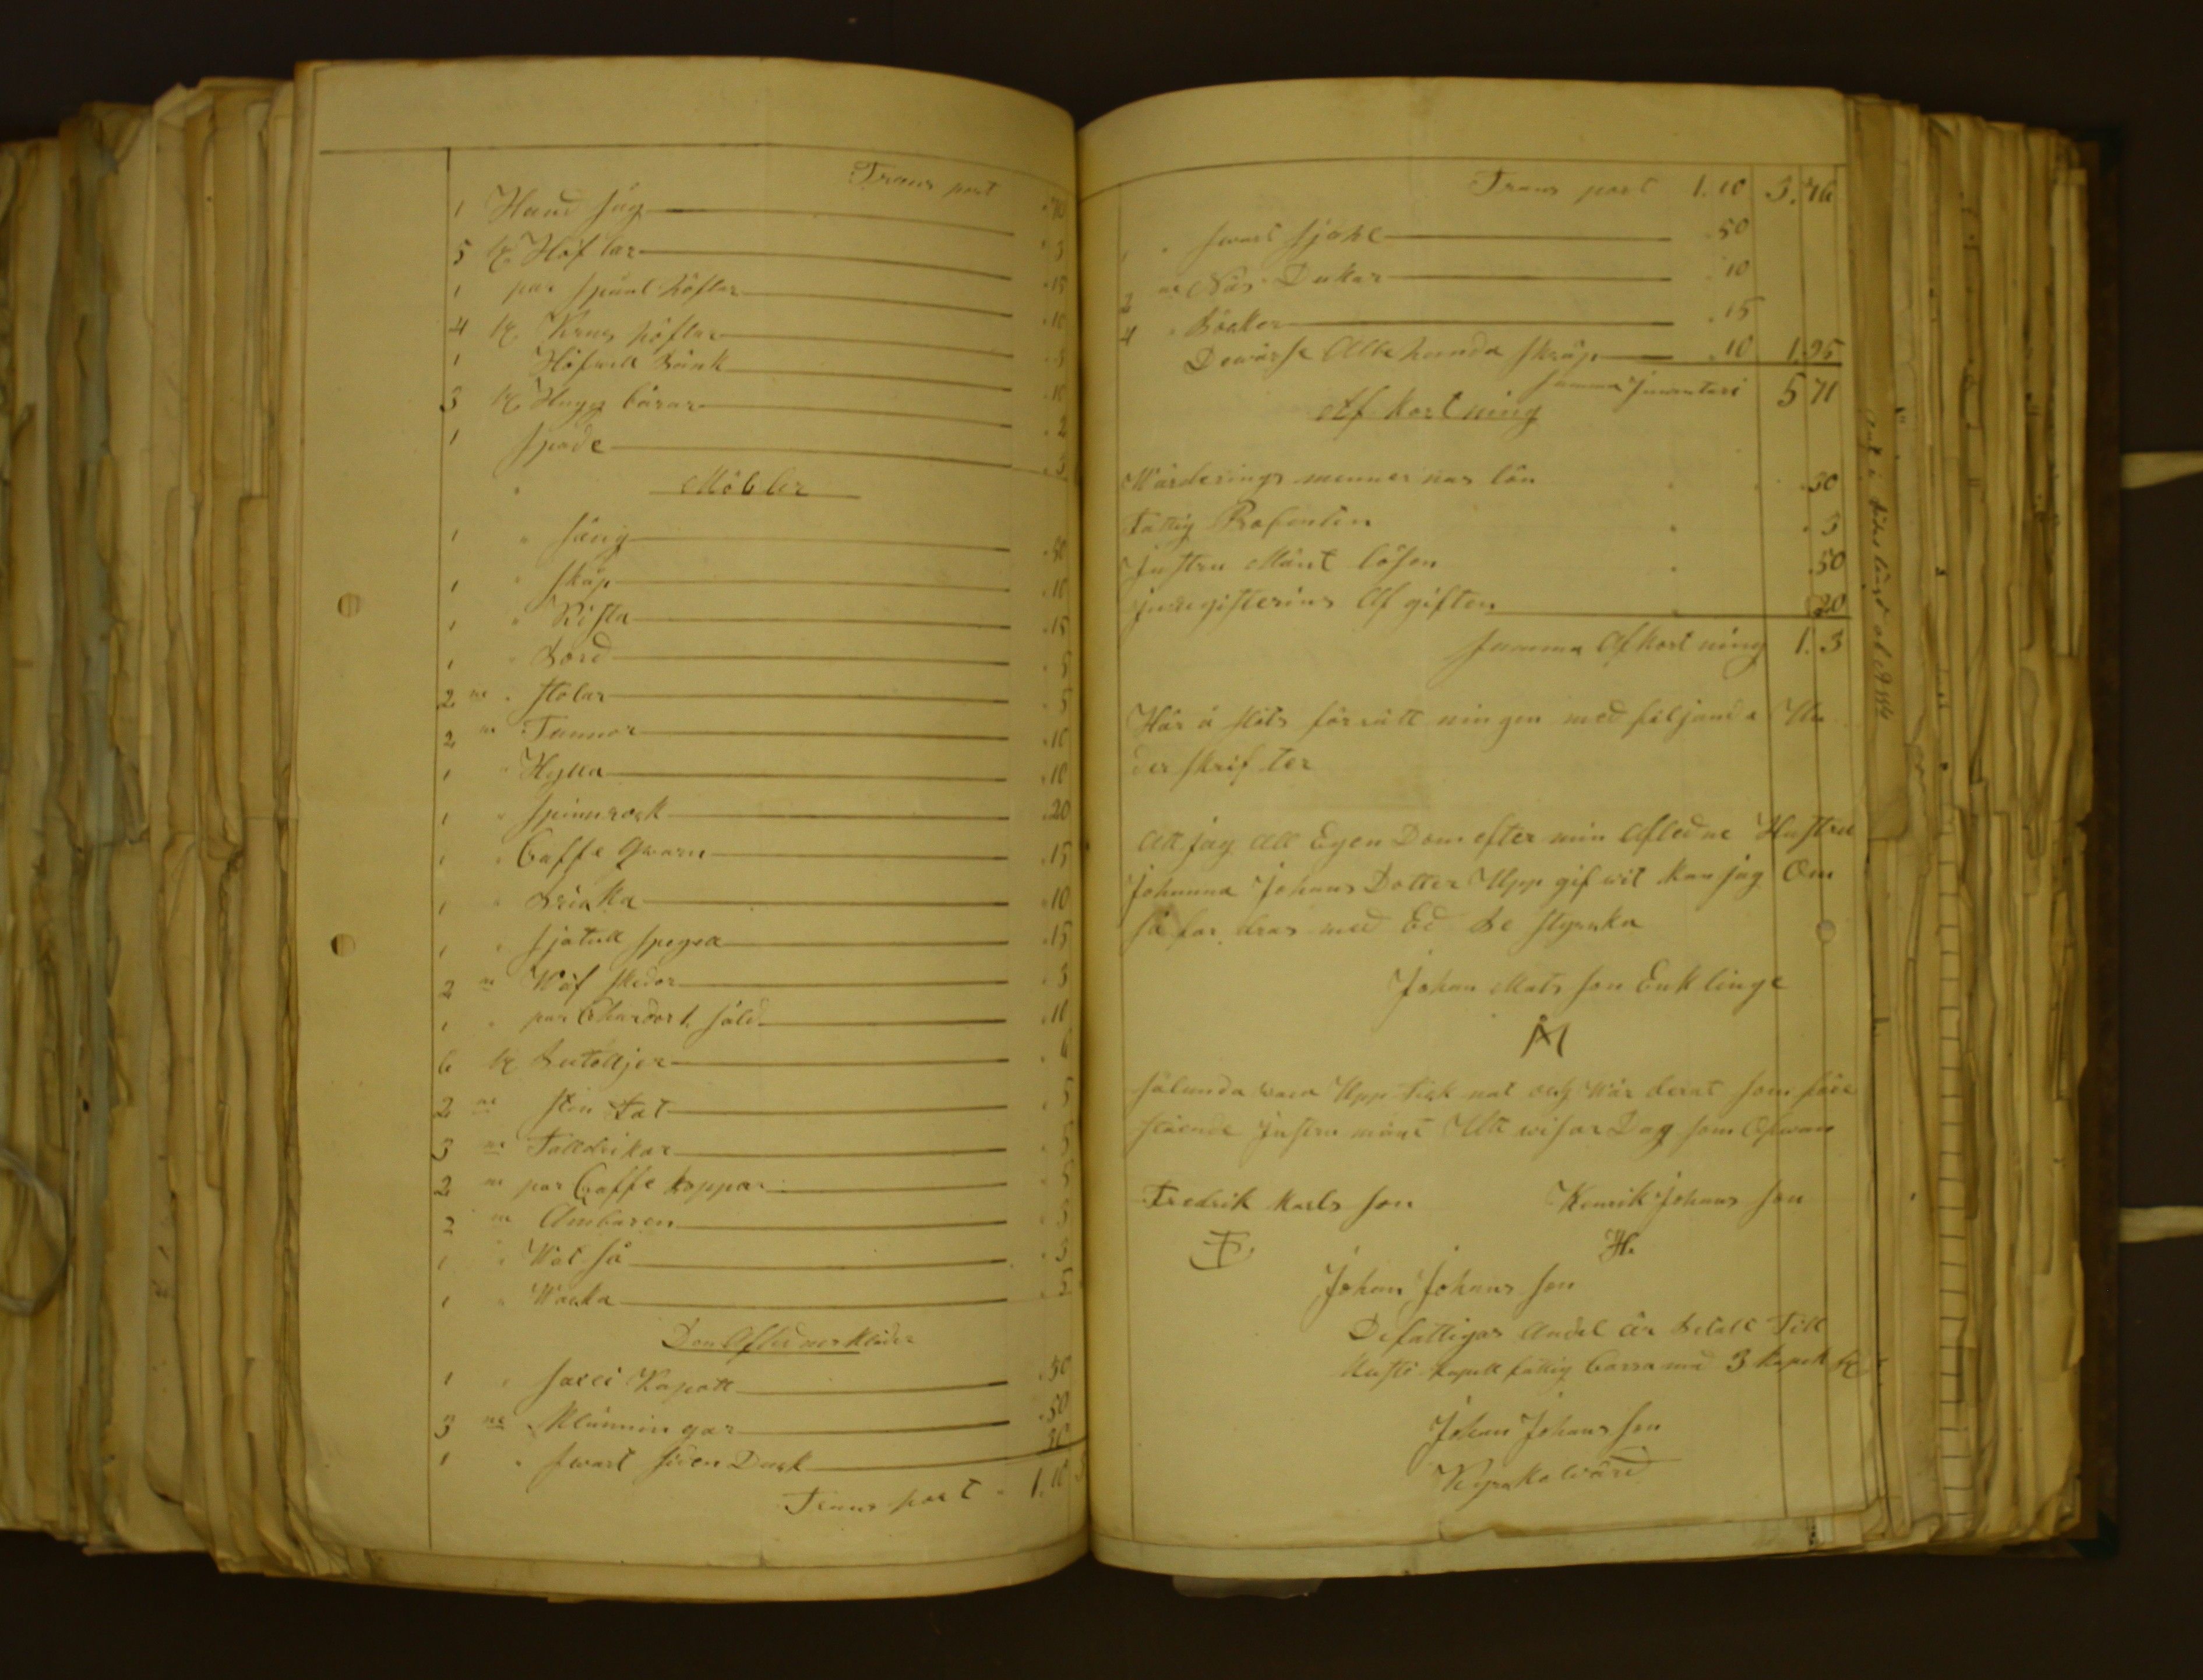 Trans port
1 Hand såg
5 st. Höflar . 3
1 par Spånt höflar . 15
4 st. Krus höflar . 10
1 Höfvell Bänk
3 st. Hugg bårar . 10
1 Spade
Möbler
1 " Säng . 50
1 " Skåp . 10
1 " Kista . 15
1 " Bord . 5
2 ne . Stolar . 5
2 ne Tunnor . 10
1 " Hylla . 10
1 " Spinnrock . 20
1 " Caffe qvarn . 15
1 " Bricka . 10
1 " Spegell . 15
2 ne Wäf skedor . 3
1 " par
6 st Butelljer . 6
2 ne Sten Fat . 5
3 ne Talldrikar . 5
2 ne par Caffe koppar . 5
2 ne Ambaren . 3
1 " Wat så . 3
1 " Wacka . 5
Den Aflidnes Kläder
1 " Kapott . 50
3 ne Klänningar . 50
1 " Swart Siden Duck 30
Trans port . 1.10
Trans port 1.10 3.76
1 " Swart Sjahl . 50
2 ne Näs Dukar . 10
4 " Böcker . 15
Dewärse Alle handa Skräp . 10 1.95
Summa Inventari 5 71
Af kortning
Wärderings mennernas lön . 30
Fattig Prosenten . 3
Instru Mänt lösen . 50
Inregisterins Af giften 20
Summa Afkort ning 1. 3
Här å slöts förrätt ningen med följande Un
der skrif ter
Att jag All Egen Dom efter min Afledne Hustru
Johanna Johans Dotter Upp gifwit kan jag Om
så for dras med Ed Be styrka
Johan Mats son Enklinge
Sålunda vara Upp tek nat och Wär derat som före
stående Instru mänt Ut wisar Dag som Ofwan
Fredrik Karls son Henrik Johans son
H.
Johan Johans son
Defattigas Andel är Betalt Till
kapell fattig Cassa med 3 kopek st
Johan Johans son
Kyrko Wärd